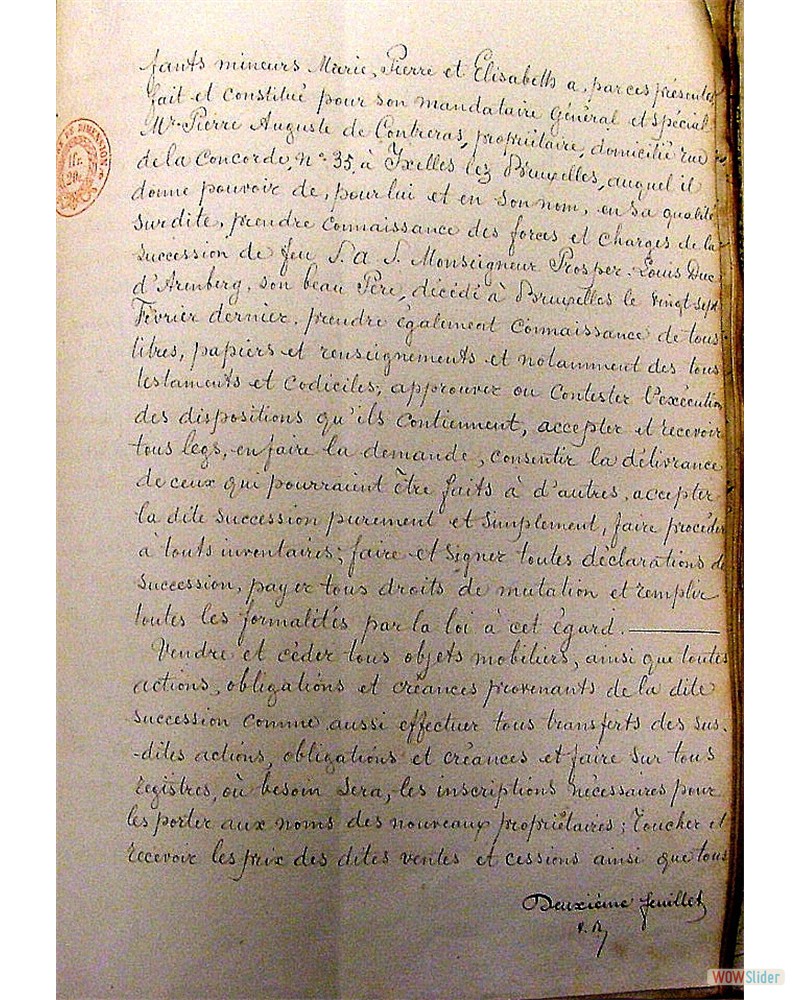 fants mineurs Marie, Pierre et Elisabeth a, par ces présentes
fait et constitué pour son mandataire Général et spécial
Mr Pierre Auguste de Contreras, propriétaire, domicilié rue
de la Concorde, N° 35, à Ixelles lez Bruxelles, auquel il
donne pouvoir de, pour lui et en son nom, en sa qualité
surdite, prendre connaissance des forces et charges de la
succession de feu S. A S. Monseigneur Prosper-Louis Duc
d'Arenberg, son beau Père, décédé à Bruxelles le vingt sept
Février dernier. prendre également connaissance de tous
titres, papiers et renseignements et notamment des tous
testaments et codiciles; approuver ou contester l'exécution
des dispositions qu'ils contiennent, accepter et recevoir
tous legs, en faire la demande, consentir la délivrance
de ceux qui pourraient être faits à d'autres, accepter
la dite succession purement et simplement, faire procéder
à touts inventaires; faire et signer toutes déclarations de
succession, payer tous droits de mutation et remplir
toutes les formalités par la loi à cet égard.
Vendre et céder tous objets mobiliers, ainsi que toutes
actions, obligations et créances provenants de la dite
succession comme aussi effectuer tous transferts des sus-
-dites actions, obligations et créances et faire sur tous
registres, où besoin sera, les inscriptions nécessaires pour
les porter aux noms des nouveaux propriétaires; Toucher et
recevoir les prix des dites ventes et cessions ainsi que tous
Deuxième feuillet
DIMENSION
WOWSlider